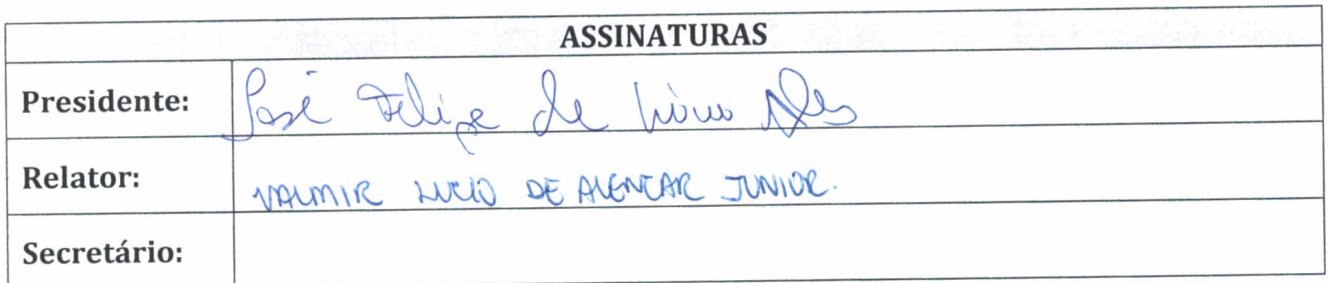 ASSINATURAS
Presidente: José Felipe de
Relator: VALMIR LUCIO DE ALENCAR JUNIOR.
Secretário: